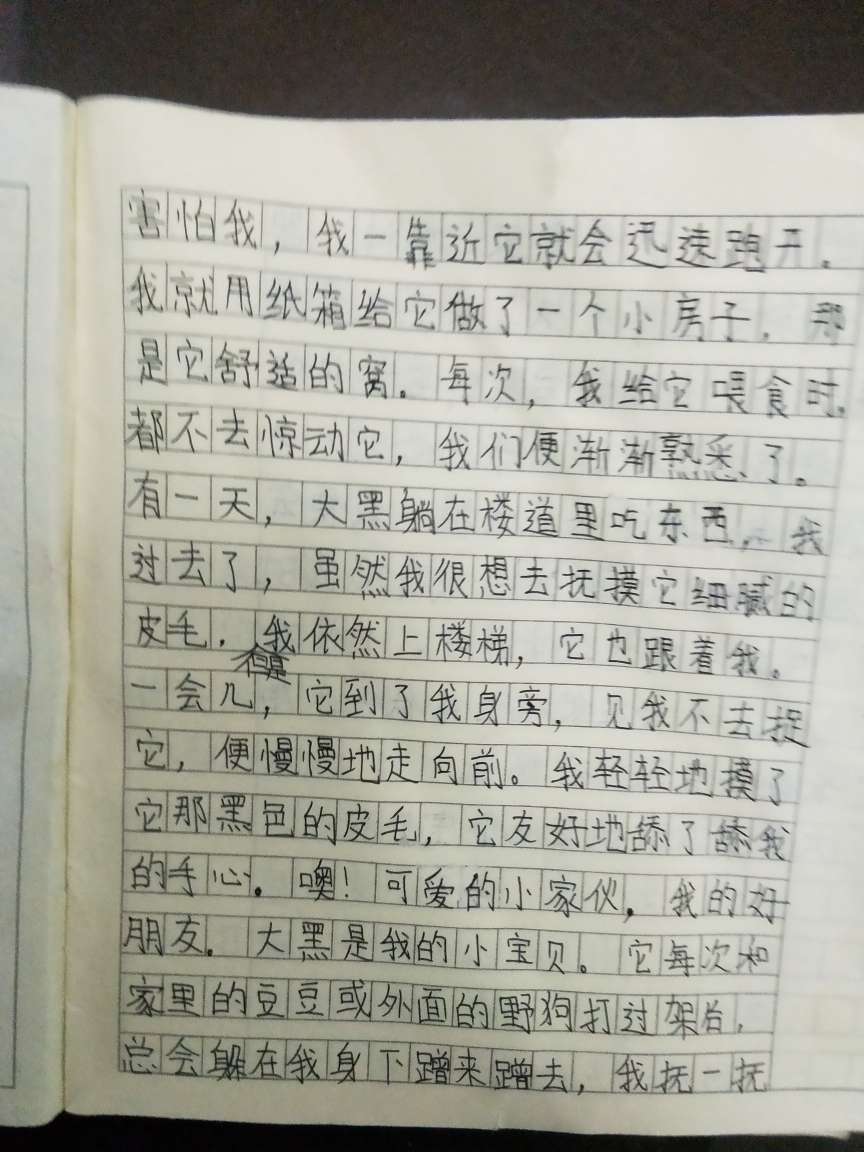 害怕我，我一靠近它就会迅速跑开。
我就用纸箱给它做了一个小房子，那
是它舒适的窝。每次，我给它喂食时，
都不去惊动它，我们便渐渐熟悉了。
有一天，大黑躺在楼道里吃东西，我
过去了，虽然我很想去抚摸它细腻的
皮毛，我依然上楼梯，它也跟着我。
但是
一会儿，它到了我身旁，见我不去捉
它，便慢慢地走向前。我轻轻地摸了
它那黑色的皮毛，它友好地舔了舔我
的手心。噢！可爱的小家伙，我的好
朋友。大黑是我的小宝贝。它每次和
家里的豆豆或外面的野狗打过架后，
总会躲在我身下蹭来蹭去，我抚一抚